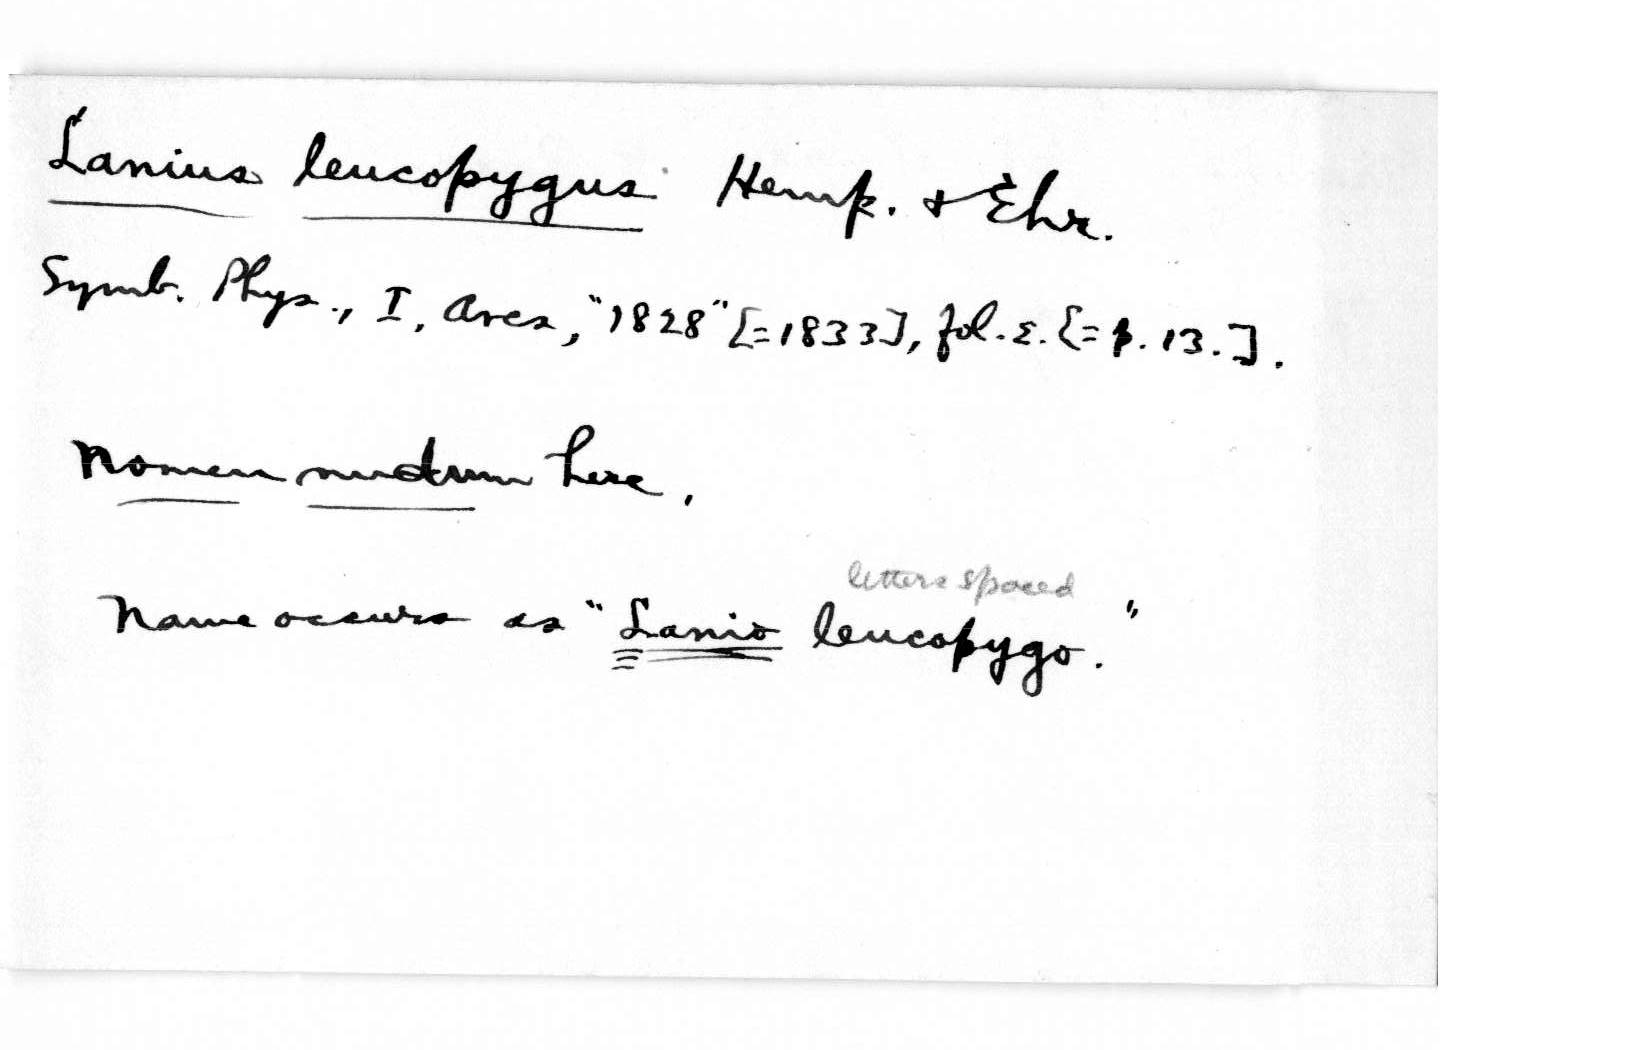 Lanius leucopygus Hemp. & Ehr.
Symb. Phys., I, Aves, "1828" [=1833], fol. ε. [=p. 13.].
Nomen nudum here.
letters spaced
Name occurs as "Lanio leucopygo."